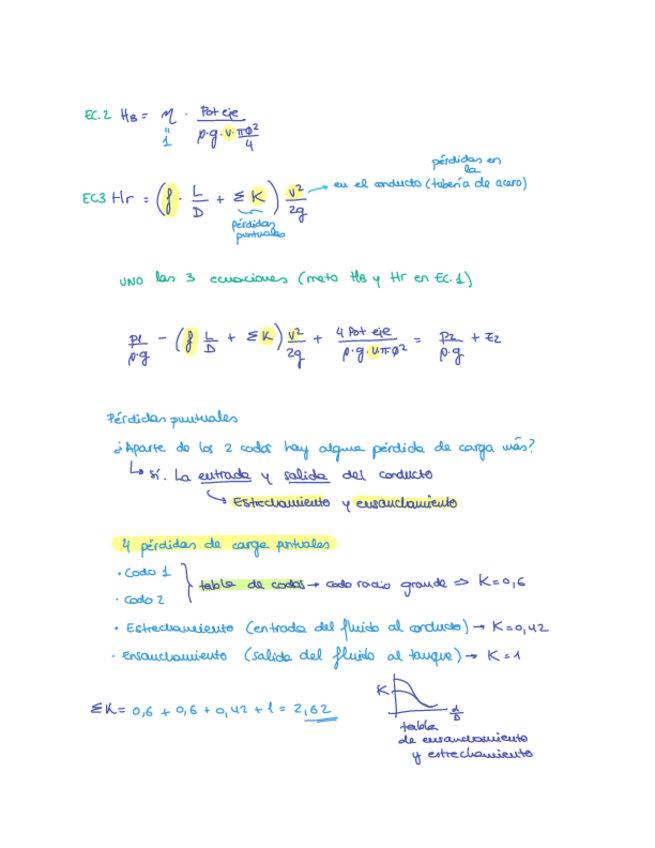 EC.2 HB = η · Pot eje / ρ·g·v·πØ²/4
" 1
pérdidas en la
EC3 Hr = (f · L/D + ΣK) v²/2g → en el conducto (tubería de acero)
pérdidas puntuales
UNO las 3 ecuaciones (meto HB y Hr en EC.1)
p1/ρ·g - (f L/D + ΣK) v²/2g + 4 Pot eje / ρ·g·v·πØ² = p2/ρ·g + z2
Pérdidas puntuales
¿Aparte de los 2 codos hay alguna pérdida de carga más?
↳ sí. La entrada y salida del conducto
↳ Estrechamiento y ensanchamiento
4 pérdidas de carga puntuales
· Codo 1
· Codo 2
} tabla de codos → codo radio grande ⇒ K=0,6
· Estrechamiento (entrada del fluido al conducto) → K=0,42
· Ensanchamiento (salida del fluido al tanque) → K=1
ΣK = 0,6 + 0,6 + 0,42 + 1 = 2,62
K
d/D
tabla
de ensanchamiento
y estrechamiento